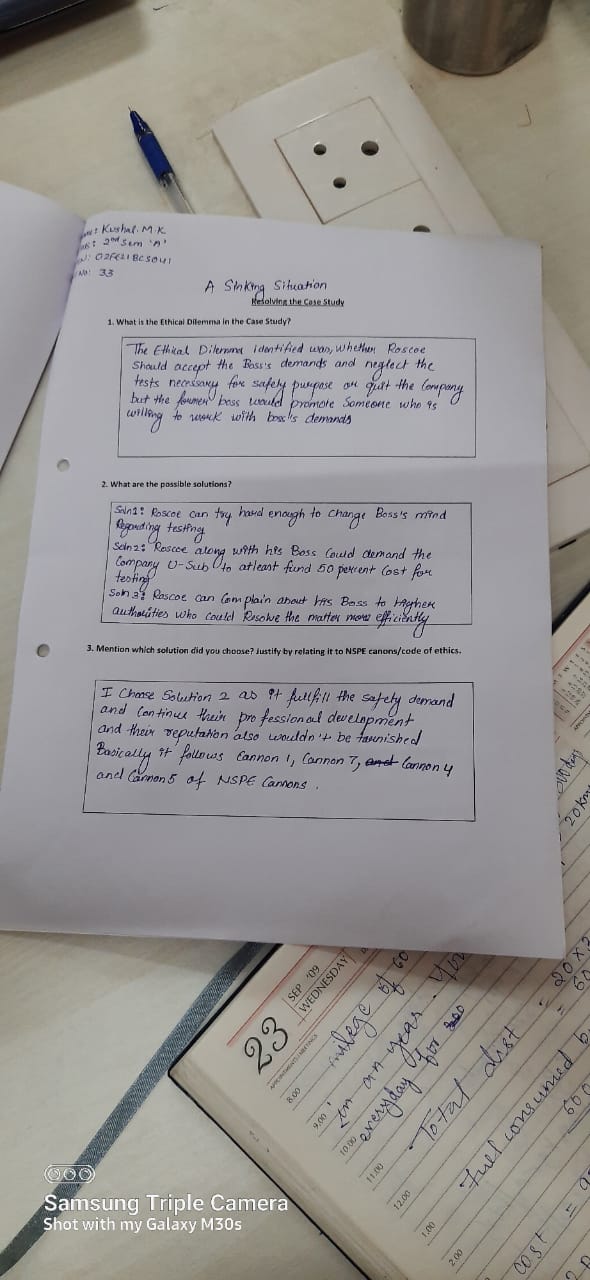 Kushal. M.K
2nd Sem 'A'
02FE21BCS041
No: 33
A Sinking Situation
Resolving the Case Study
1. What is the Ethical Dilemma in the Case Study?
The Ethical Dilemma identified was, whether Roscoe
Should accept the Boss's demands and neglect the
tests necessary for safety purpose or quit the Company
but the former boss would promote Someone who is
willing to work with boss's demands
2. What are the possible solutions?
Soln1: Roscoe can try hard enough to change Boss's mind
Regarding testing
Soln2: Roscoe along with his Boss Could demand the
Company U-Sub to atleast fund 50 percent Cost for
testing
Soln 3: Roscoe can Complain about his Boss to higher
authorities who could Resolve the matter more efficiently
3. Mention which solution did you choose? Justify by relating it to NSPE canons/code of ethics.
I Choose Solution 2 as it fullfill the safety demand
and Continue their professional development
and their reputation also wouldn't be tarnished
Basically it follows Cannon 1, Cannon 7, and Cannon 4
and Cannon 5 of NSPE Cannons.
23
SEP '09
WEDNESDAY
APPOINTMENTS/MEETINGS
8.00
9.00
10.00
11.00
12.00
1.00
2.00
of 60
in an year.
everyday for
Total dist
= 20x
Fuel consumed
600
cost =
20km
Samsung Triple Camera
Shot with my Galaxy M30s